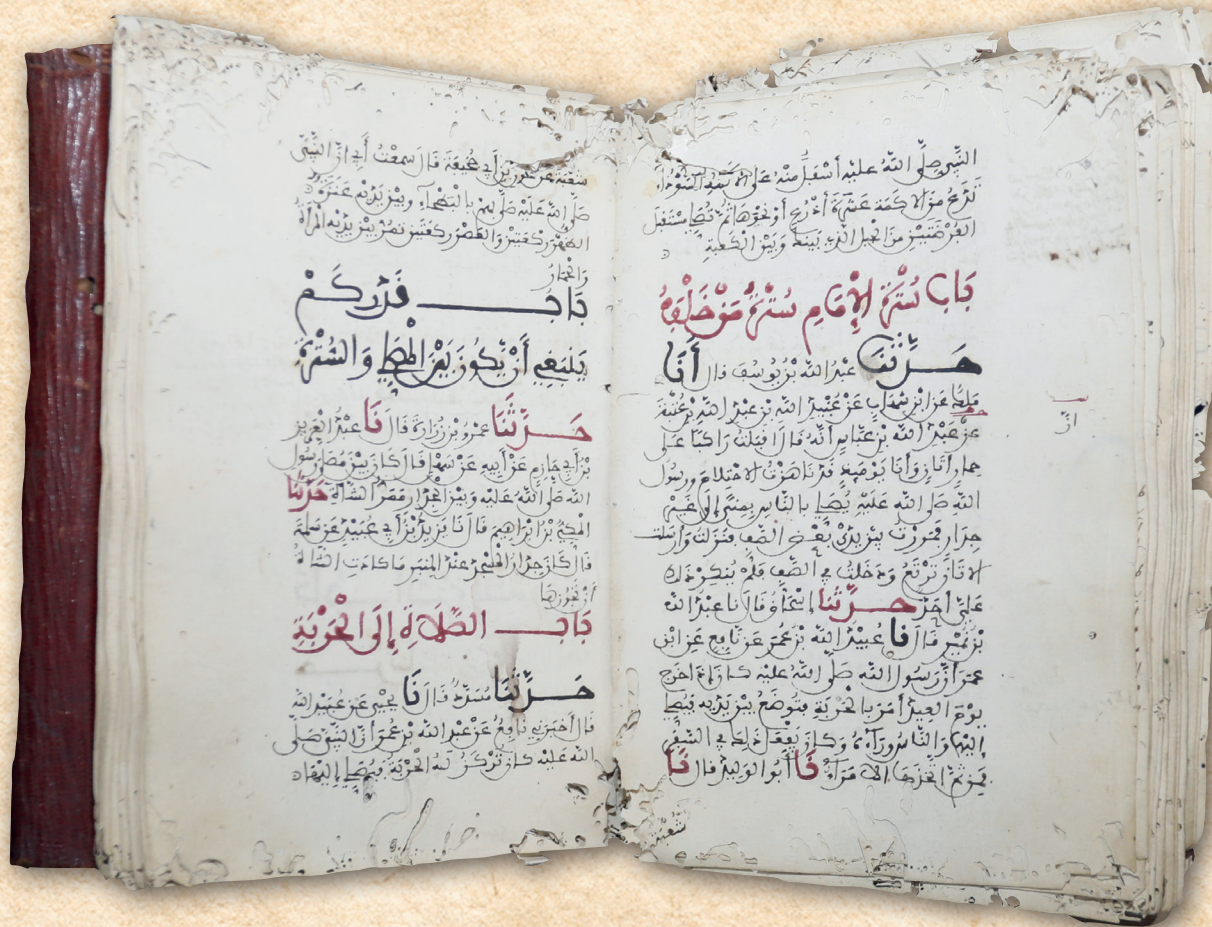 النَّبِيِّ صَلَّى اللَّهُ عَلَيْهِ أَسْفَلَ مِنْهُ عَلَى الاكمة السَّوْدَاءِ
تَدَعُ مِنَ الاكمة عَشَرَةَ أَذْرُعٍ أَوْ نَحْوَهَا ثُمَّ تُصَلِّي مُسْتَقْبِلَ
الفُرْضَتَيْنِ مِنَ الجبل الذي بَيْنَكَ وَبَيْنَ الكَعبة
بَابُ سُتْرَةُ الإِمَامِ سُتْرَةُ مَنْ خَلْفَهُ
حَدَّثَنَا عَبْدُ الله بْنُ يُوسُفَ قال أَنَا
مَلِك عَنِ ابْنِ شِهَابٍ عَنْ عُبَيْدِ الله بْنِ عَبْدِ اللهِ بْنِ عُتْبَةَ
عَنْ عَبْدِ الله بْنِ عَبَّاسٍ أَنَّهُ قَالَ أَقْبَلْتُ رَاكِبًا عَلَى
حِمَارٍ أَتَانٍ وَأَنَا يَوْمَئِذٍ قَدْ نَاهَزْتُ الاحْتِلَامَ ورسول
الله صَلَّى الله عَلَيْهِ يُصَلِّي بِالنَّاسِ بِمِنًى إِلَى غَيْرِ
جِدَارٍ فَمَرَرْتُ بَيْنَ يَدَيْ بَعْضِ الصَّفِّ فَنَزَلْتُ وَأَرْسَلْتُ
الاتَانَ تَرْتَعُ وَدَخَلْتُ فِي الصَّفِّ فَلَمْ يُنْكِرْ ذلك
عَلَيَّ أَحَدٌ حَدَّثَنَا إِسْحَاقُ قَالَ نا عَبْدُ الله
بْنُ نُمَيْرٍ قَالَ نَا عُبَيْدُ الله بْنُ عُمَرَ عَنْ نَافِعٍ عَنِ ابْنِ
عُمَرَ أَنَّ رَسُولَ الله صَلَّى اللهُ عَلَيْهِ كَانَ إِذَا خَرَجَ
يَوْمَ العِيدِ أَمَرَ بِالْحَرْبَةِ فَتُوضَعُ بَيْنَ يَدَيْهِ فَيُصَلِّي
إِلَيْهَا وَالنَّاسُ وَرَاءَهُ وَكَانَ يَفْعَلُ ذَلِكَ فِي السَّفَرِ
فَمِنْ ثَمَّ اتَّخَذَهَا الامَرَاءُ نَا أَبُو الوَلِيدِ قال نَا
شُعْبَةُ
شُعْبَةُ عَنْ عَوْنِ بْنِ أَبِي جُحَيْفَةَ قَالَ سَمِعْتُ أَبِي أَنَّ النَّبِيَّ
صَلَّى اللهُ عَلَيْهِ صَلَّى بِهِمْ بِالْبَطْحَاءِ وَبَيْنَ يَدَيْهِ عَنَزَةٌ
الظُّهْرَ رَكْعَتَيْنِ وَالعَصْرَ رَكْعَتَيْنِ تَمُرُّ بَيْنَ يَدَيْهِ المَرْأَةُ
وَالْحِمَارُ
بَابُ قَدْرِ كَمْ
يَنْبَغِي أَنْ يَكُونَ بَيْنَ الْمُصَلِّي وَالسُّتْرَةِ
حَدَّثَنَا عَمْرُو بْنُ زُرَارَةَ قَالَ نَا عَبْدُ العَزِيزِ
بْنُ أَبِي حَازِمٍ عَنْ أَبِيهِ عَنْ سَهْلٍ قَالَ كَانَ بَيْنَ مُصَلَّى رَسُولِ
الله صَلَّى الله عَلَيْهِ وَبَيْنَ الْجِدَارِ مَمَرُّ الشَّاةِ حَدَّثَنَا
الْمَكِّيُّ بْنُ إِبْرَاهِيمَ قَالَ نَا يَزِيدُ بْنُ أَبِي عُبَيْدٍ عَنْ سَلَمَةَ
قَالَ كَانَ جِدَارُ الْمَسْجِدِ عِنْدَ المِنْبَرِ مَا كَادَتِ الشَّاةُ
أَنْ تَجُوزَهَا
بَابُ الصَّلَاةِ إِلَى الْحَرْبَةِ
حَدَّثَنَا مُسَدَّدٌ قَالَ نَا يَحْيَى عَنْ عُبَيْدِ الله
قَالَ أَخْبَرَنِي نَافِعٌ عَنْ عَبْدِ الله بْنِ عُمَرَ أَنَّ النَّبِيَّ صَلَّى
الله عَلَيْهِ كَانَ تُرْكَزُ لَهُ الْحَرْبَةُ فَيُصَلِّي إِلَيْهَا